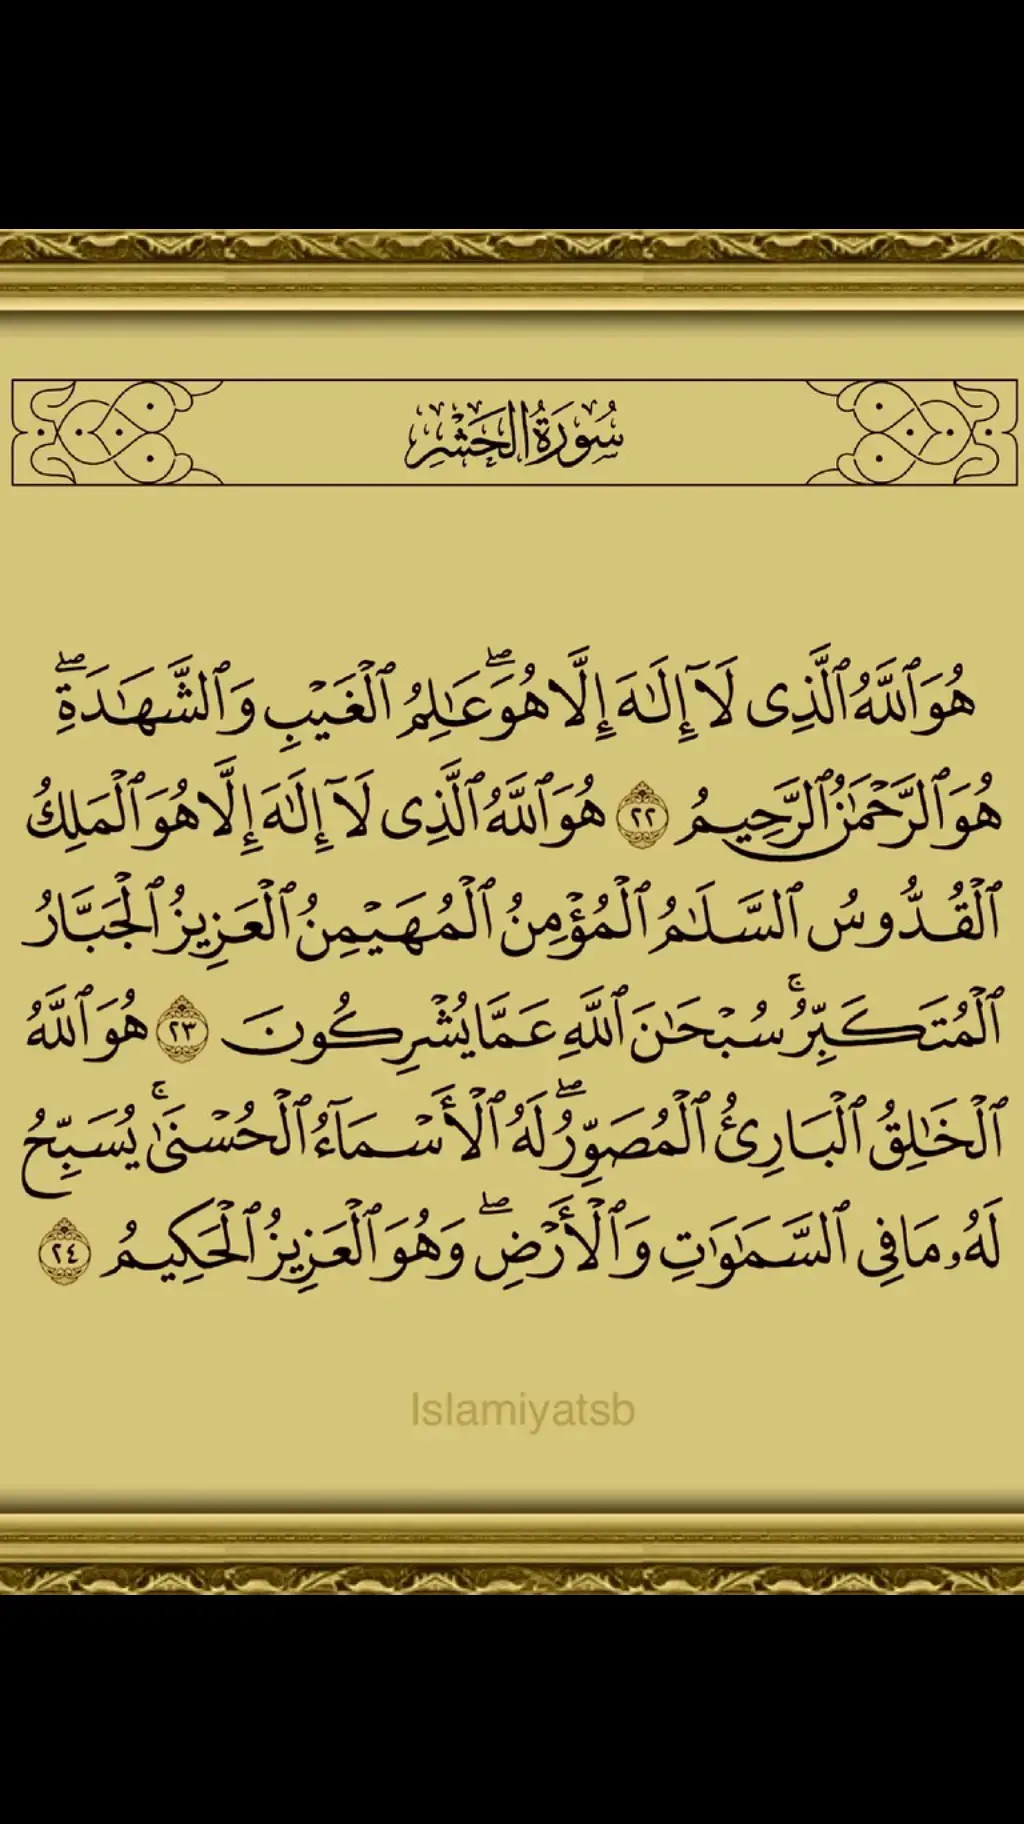 سُورَةُ الحَشْرِ
هُوَ ٱللَّهُ ٱلَّذِى لَآ إِلَـٰهَ إِلَّا هُوَ ۖ عَـٰلِمُ ٱلْغَيْبِ وَٱلشَّهَـٰدَةِ ۖ
هُوَ ٱلرَّحْمَـٰنُ ٱلرَّحِيمُ ٢٢ هُوَ ٱللَّهُ ٱلَّذِى لَآ إِلَـٰهَ إِلَّا هُوَ ٱلْمَلِكُ
ٱلْقُدُّوسُ ٱلسَّلَـٰمُ ٱلْمُؤْمِنُ ٱلْمُهَيْمِنُ ٱلْعَزِيزُ ٱلْجَبَّارُ
ٱلْمُتَكَبِّرُ ۚ سُبْحَـٰنَ ٱللَّهِ عَمَّا يُشْرِكُونَ ٢٣ هُوَ ٱللَّهُ
ٱلْخَـٰلِقُ ٱلْبَارِئُ ٱلْمُصَوِّرُ ۖ لَهُ ٱلْأَسْمَآءُ ٱلْحُسْنَىٰ ۚ يُسَبِّحُ
لَهُۥ مَا فِى ٱلسَّمَـٰوَٰتِ وَٱلْأَرْضِ ۖ وَهُوَ ٱلْعَزِيزُ ٱلْحَكِيمُ ٢٤
Islamiyatsb